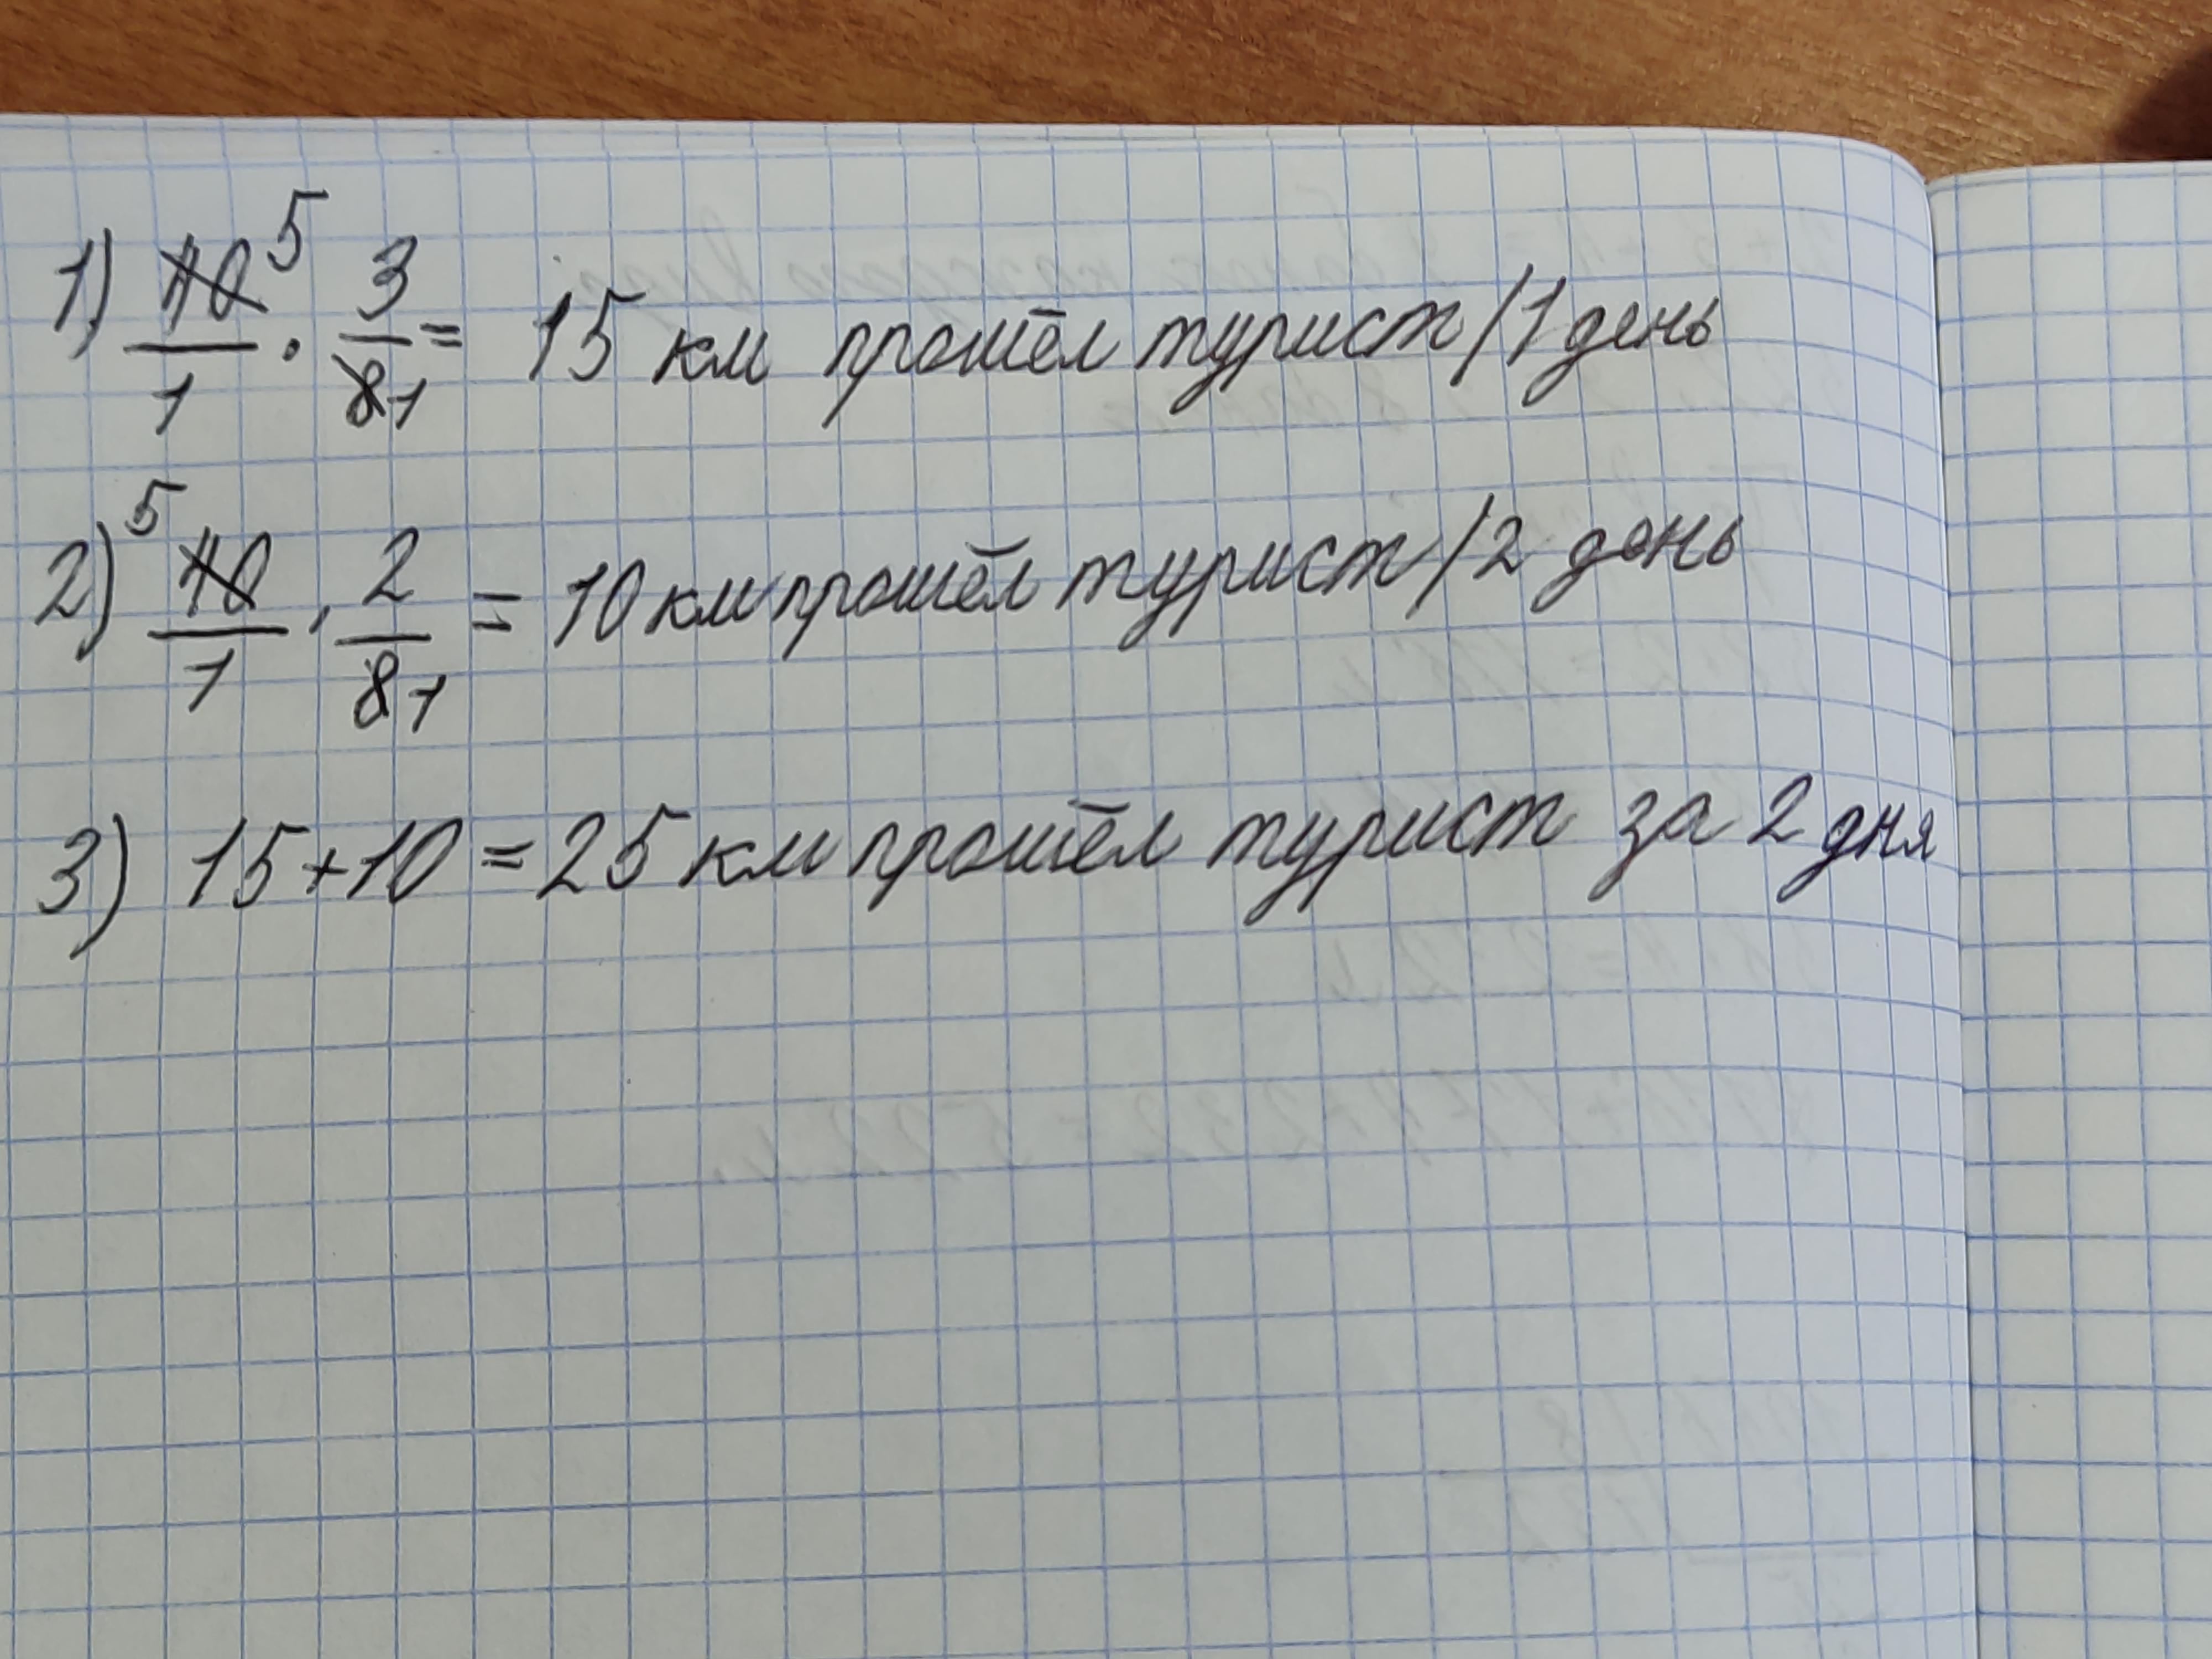 1) 40 5 / 1 · 3 / 8 1 = 15 км прошёл турист / 1 день
2) 5 40 / 1 · 2 / 8 1 = 10 км прошёл турист / 2 день
3) 15+10 = 25 км прошёл турист за 2 дня